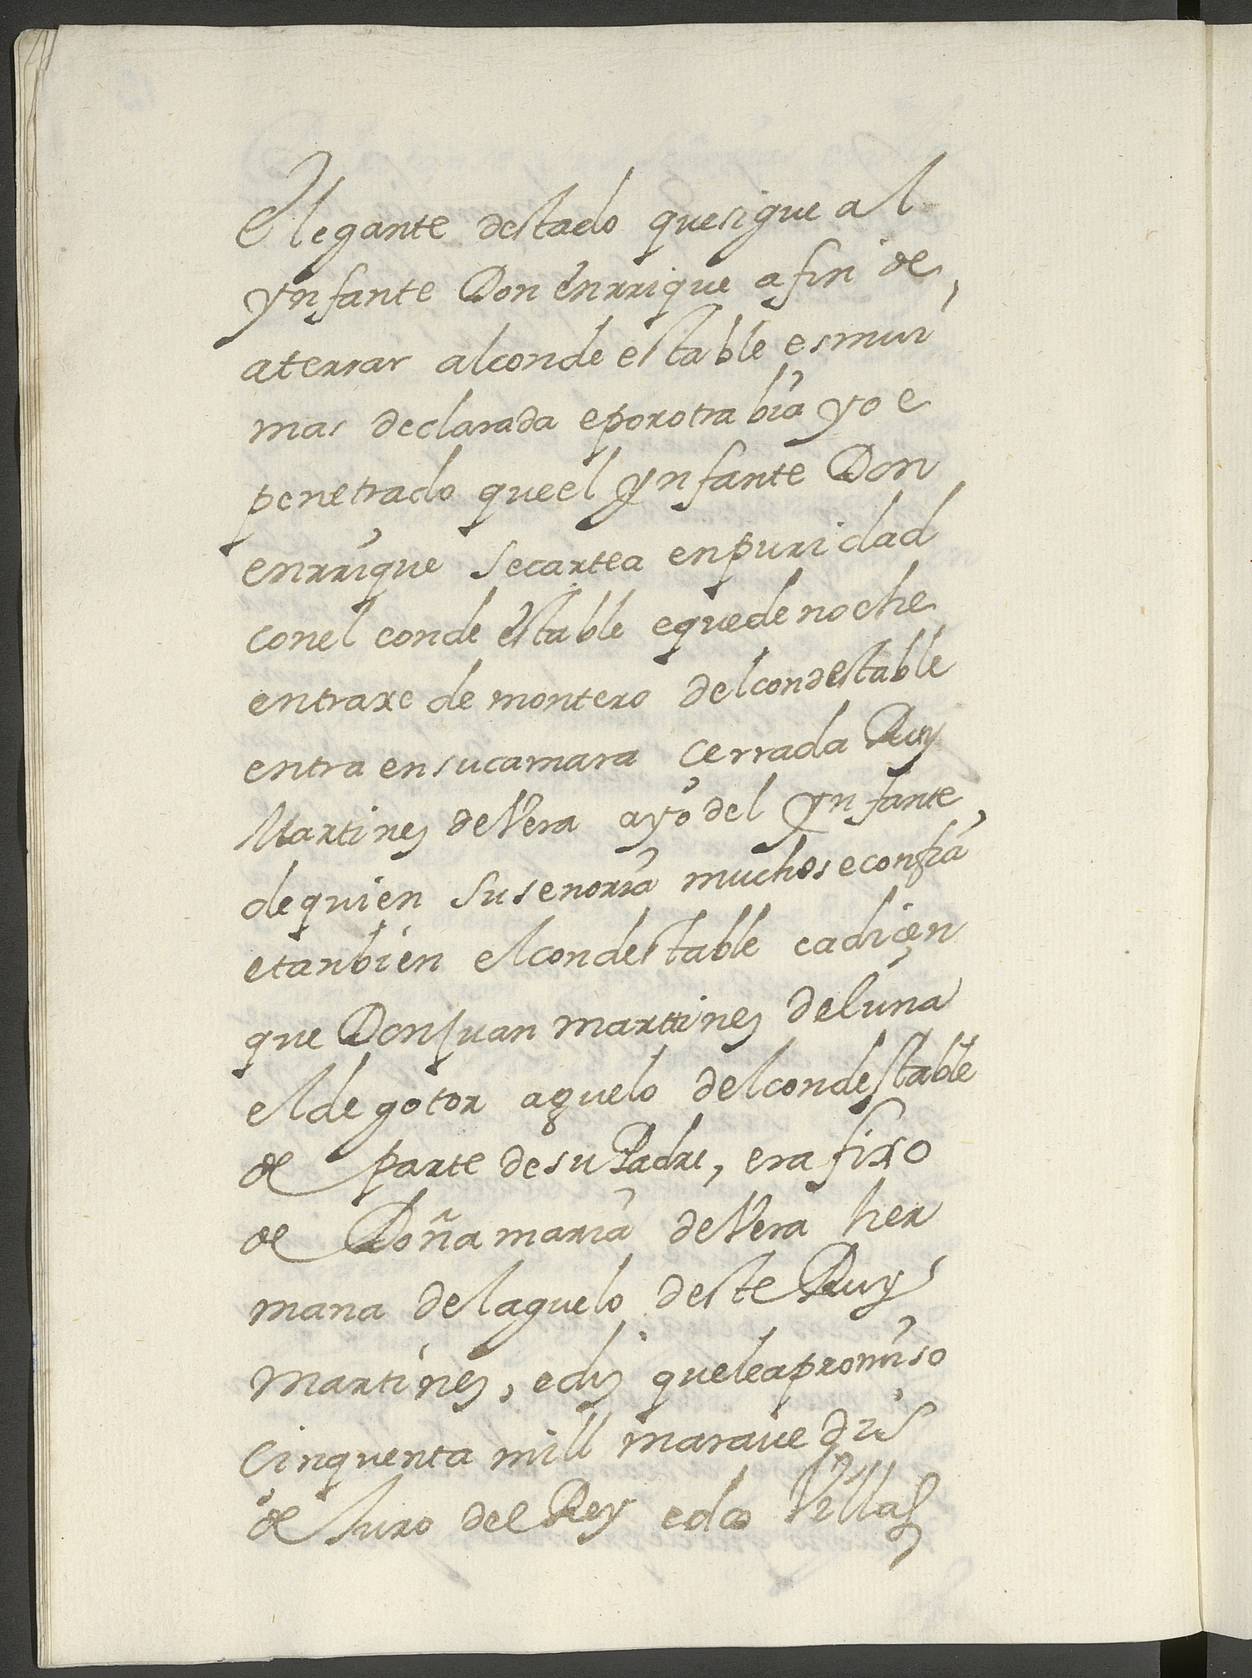 Elegante destado quesigue al
ynfante Don enrrique afin de
aterrar alcondeestable esmui
mas declarada eporotra bia yo e
penetrado queel ynfante Don
enrrique secartea enpuridad
conel condeestable equede noche
entraxe de montero delcondestable
entra ensucamara cerrada Ruy
Martines deVera ayo del ynfante
dequien susenoria muchoseconfia
etanbien elcondestable cadicen
que Donjuan marttines deluna
elde gotor aguelo delcondestable
de parte desu Padre, era fixo
de Doña maria deVera her
mana delaguelo deste Ruy
martines, edis queleapromiso
cinquenta mill maravedis
de Juro del Rey edos Villas